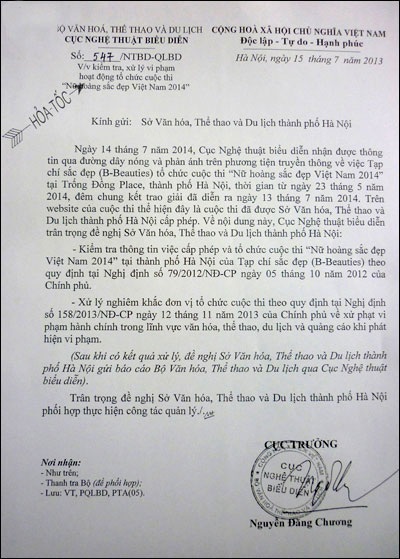 BỘ VĂN HÓA, THỂ THAO VÀ DU LỊCH
CỤC NGHỆ THUẬT BIỂU DIỄN
CỘNG HOÀ XÃ HỘI CHỦ NGHĨA VIỆT NAM
Độc lập - Tự do - Hạnh phúc
Số: 547 /NTBD-QLBD
V/v kiểm tra, xử lý vi phạm
hoạt động tổ chức cuộc thi
“Nữ hoàng sắc đẹp Việt Nam 2014”
Hà Nội, ngày 15 tháng 7 năm 2013
HỎA-TỐC
Kính gửi: Sở Văn hóa, Thể thao và Du lịch thành phố Hà Nội
Ngày 14 tháng 7 năm 2014, Cục Nghệ thuật biểu diễn nhận được thông
tin qua đường dây nóng và phản ánh trên phương tiện truyền thông về việc Tạp
chí sắc đẹp (B-Beauties) tổ chức cuộc thi “Nữ hoàng sắc đẹp Việt Nam 2014”
tại Trống Đồng Place, thành phố Hà Nội, thời gian từ ngày 23 tháng 5 năm
2014, đêm chung kết trao giải đã diễn ra ngày 13 tháng 7 năm 2014. Trên
website của cuộc thi thể hiện đây là cuộc thi đã được Sở Văn hóa, Thể thao và
Du lịch thành phố Hà Nội cấp phép. Về nội dung này, Cục Nghệ thuật biểu diễn
trân trọng đề nghị Sở Văn hóa, Thể thao và Du lịch thành phố Hà Nội:
- Kiểm tra thông tin việc cấp phép và tổ chức cuộc thi “Nữ hoàng sắc đẹp
Việt Nam 2014” tại thành phố Hà Nội của Tạp chí sắc đẹp (B-Beauties) theo
quy định tại Nghị định số 79/2012/NĐ-CP ngày 05 tháng 10 năm 2012 của
Chính phủ.
- Xử lý nghiêm khắc đơn vị tổ chức cuộc thi theo quy định tại Nghị định
số 158/2013/NĐ-CP ngày 12 tháng 11 năm 2013 của Chính phủ về xử phạt vi
phạm hành chính trong lĩnh vực văn hóa, thể thao, du lịch và quảng cáo khi phát
hiện vi phạm.
(Sau khi có kết quả xử lý, đề nghị Sở Văn hóa, Thể thao và Du lịch thành
phố Hà Nội gửi báo cáo Bộ Văn hóa, Thể thao và Du lịch qua Cục Nghệ thuật
biểu diễn).
Trân trọng đề nghị Sở Văn hóa, Thể thao và Du lịch thành phố Hà Nội
phối hợp thực hiện công tác quản lý./.
Nơi nhận:
- Như trên;
- Thanh tra Bộ (để phối hợp);
- Lưu: VT, PQLBD, PTA(05).
CỤC TRƯỞNG
CỤC
NGHỆ THUẬT
BIỂU DIỄN
Nguyễn Đăng Chương